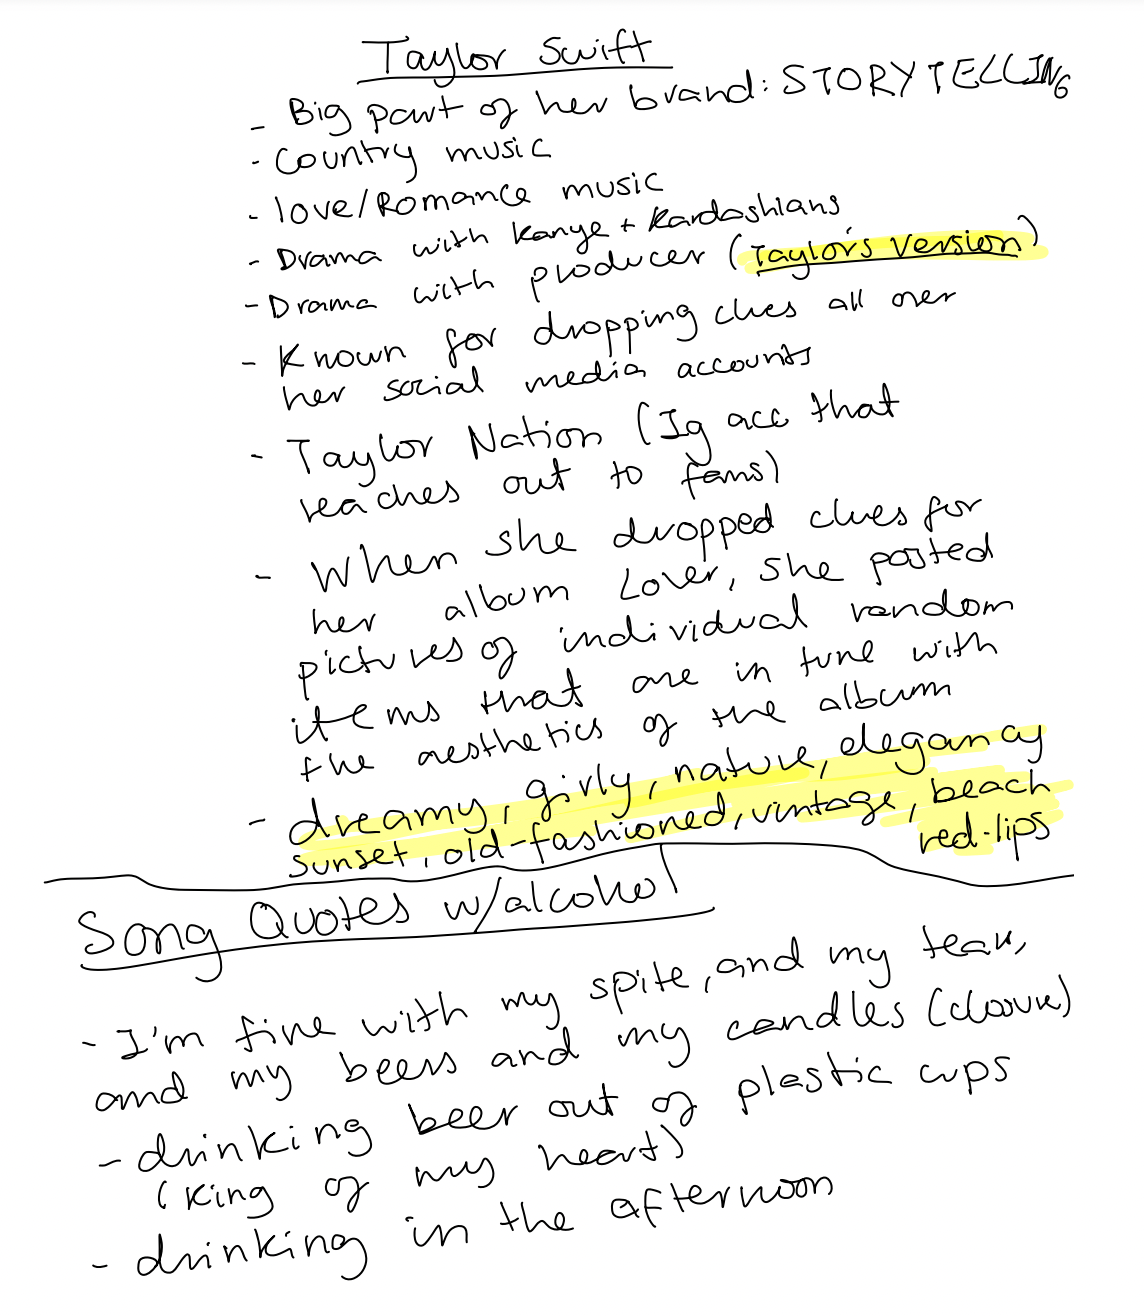 Taylor Swift
- Big part of her brand: STORYTELLING
- Country music
- love/Romance music
- Drama with Kanye + Kardashians
- Drama with producer (Taylor's Version)
- Known for dropping clues all over
her social media accounts
- Taylor Nation (Ig acc that
reaches out to fans)
- When she dropped clues for
her album Lover, she posted
pictures of individual random
items that are in tune with
the aesthetics of the album
- dreamy, girly, nature, elegancy
sunset, old-fashioned, vintage, beach
red-lips
Song Quotes w/alcohol
- I'm fine with my spite, and my tears,
and my beers and my candles (closure)
- drinking beer out of plastic cups
(King of my heart)
- drinking in the afternoon